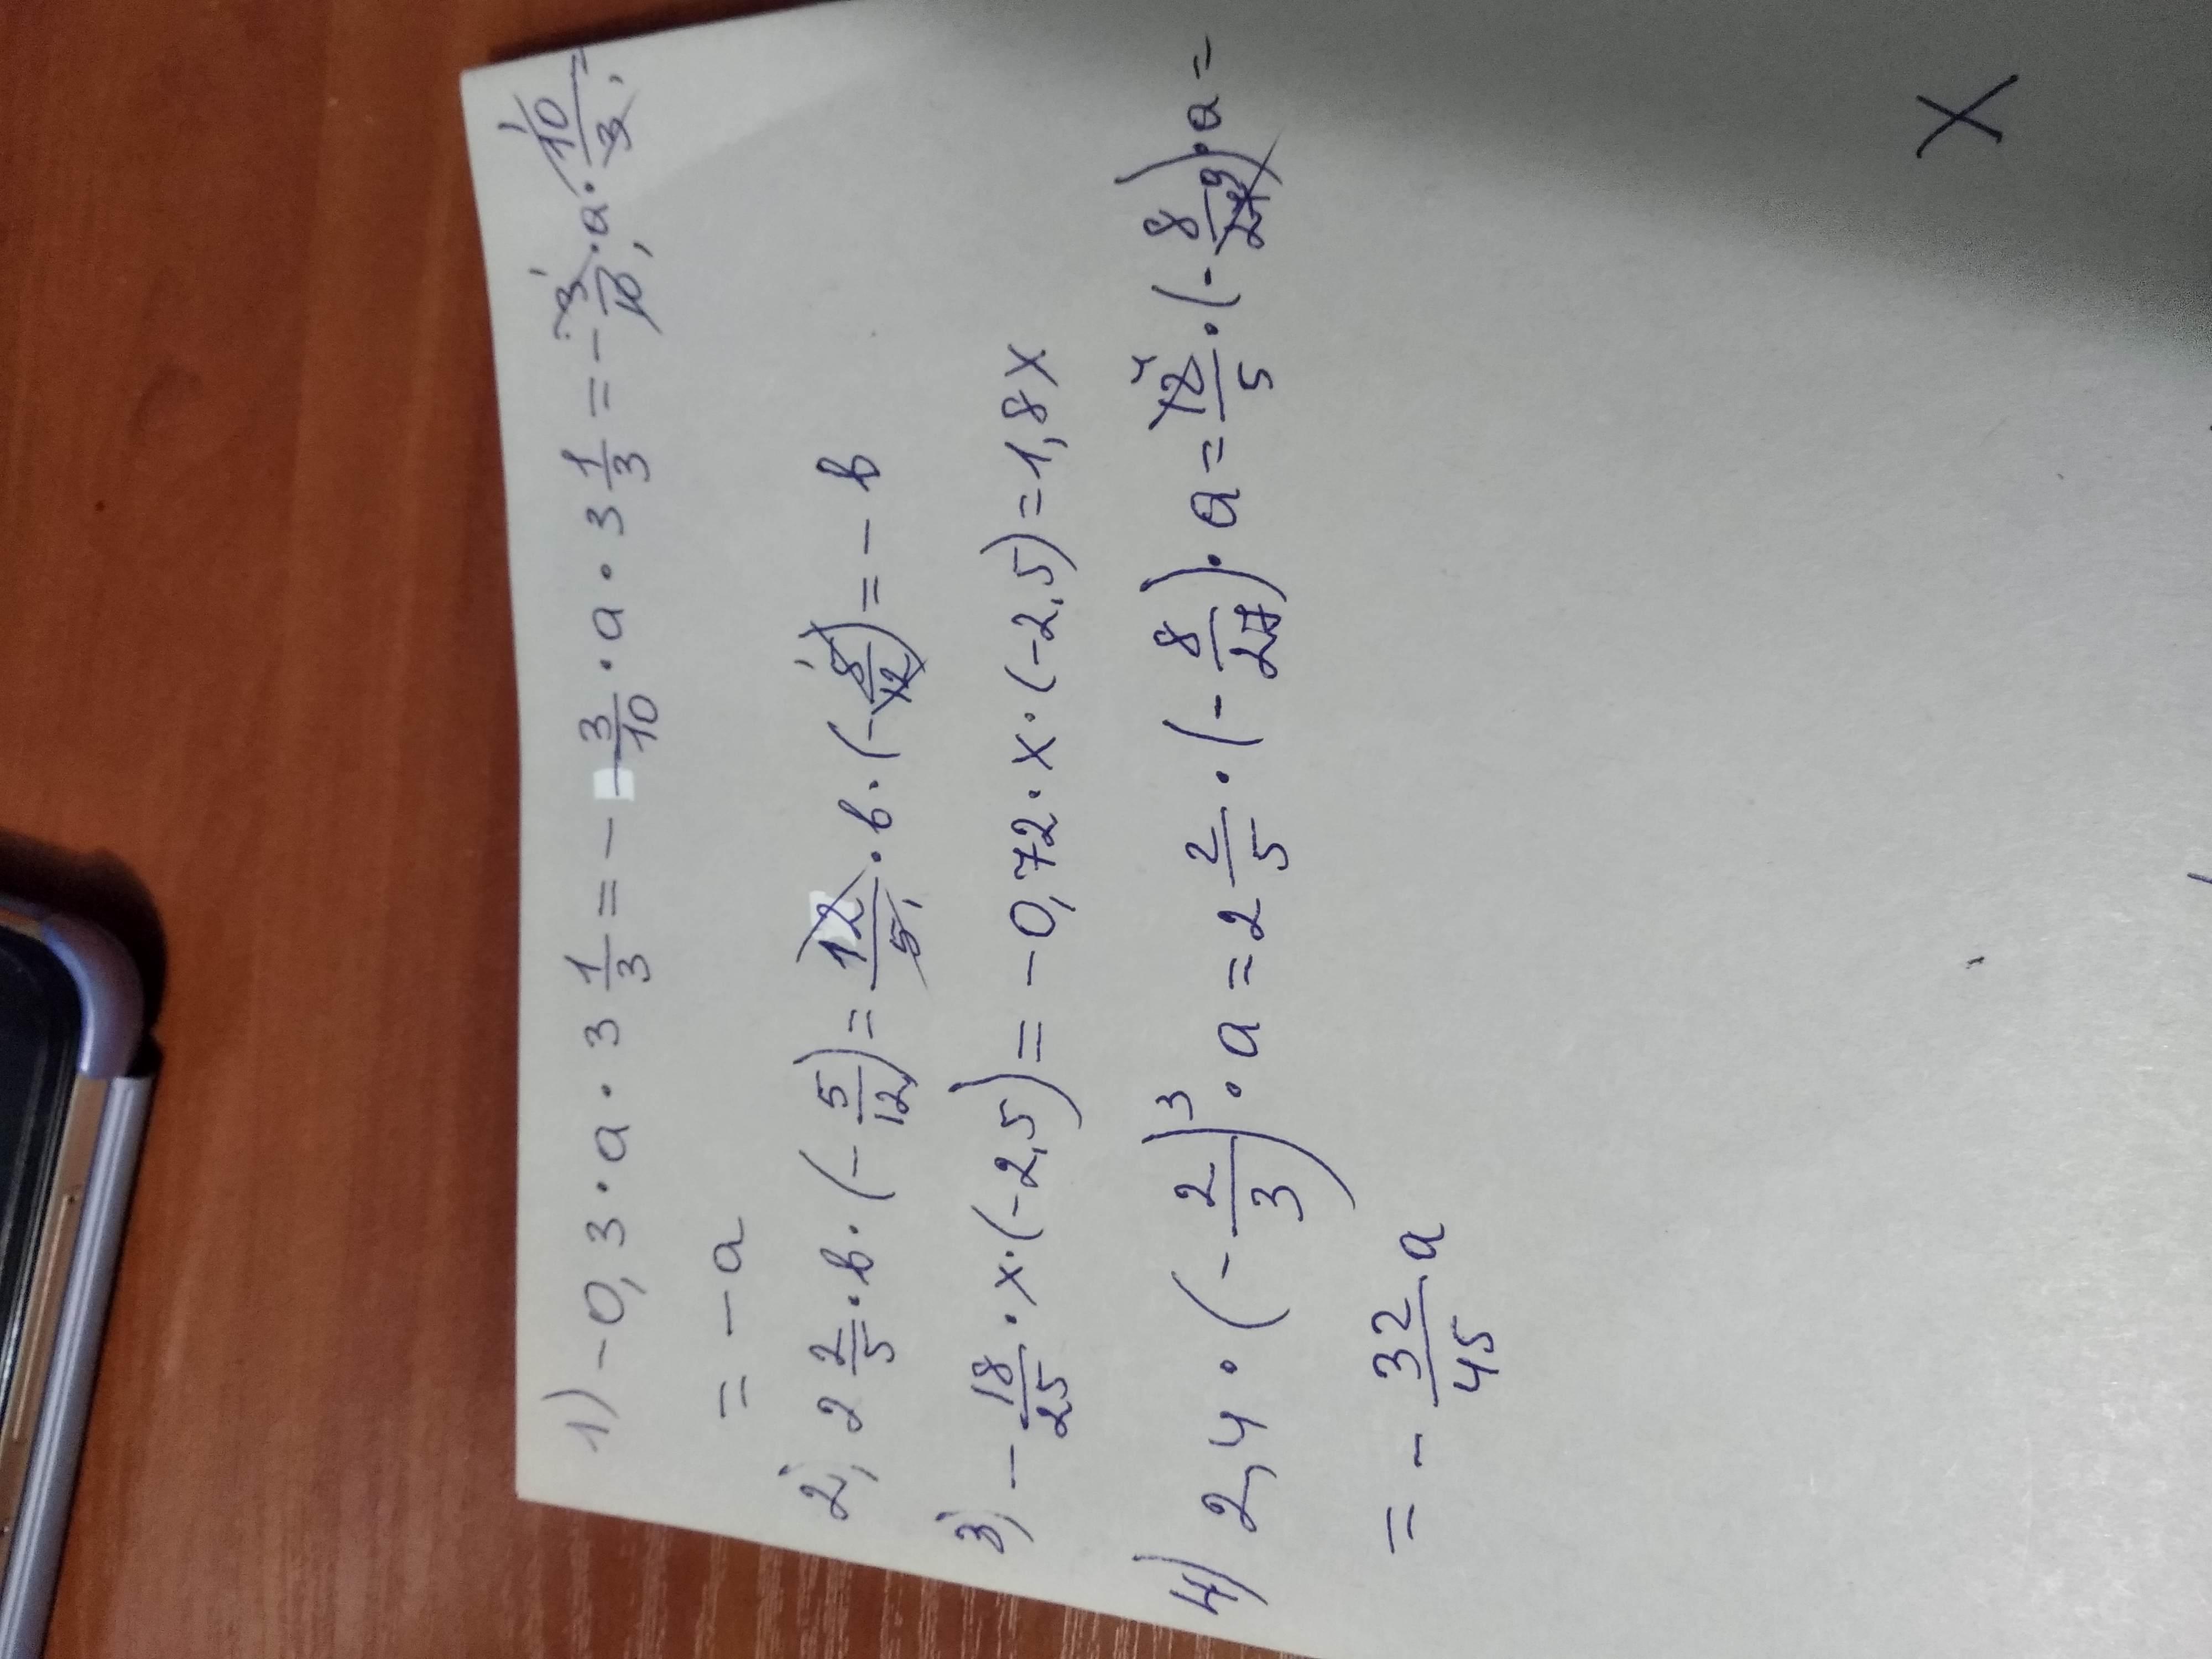 1) -0,3 · a · 3 1/3 = - 3/10 · a · 3 1/3 = - 3/10 · a · 10/3 =
= - a
2) 2 2/5 · b · (- 5/12) = 12/5 · b · (- 8/12) = - b
3) - 18/25 · x · (-2,5) = -0,72 · x · (-2,5) = 1,8x
4) 2,4 · (- 2/3)³ · a = 2 2/5 · (- 8/27) · a = 12/5 · (- 8/27) · a =
= - 32/45 a
X